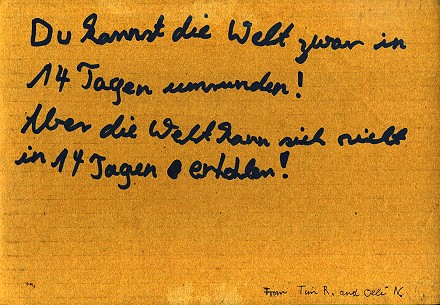 Du kannst die Welt zwar in
14 Tagen umrunden!
Aber die Welt kann sich nicht
in 14 Tagen erholen!
From Tim R. and Olli K.